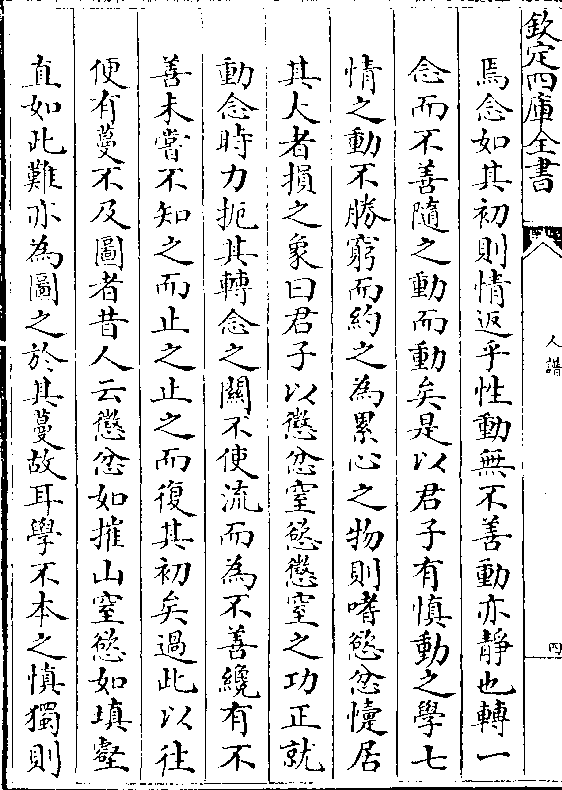 欽定四庫全書
人譜
四
焉念如其初則情返乎性動無不善動亦靜也轉一
念而不善隨之動而動矣是以君子有慎動之學七
情之動不勝窮而約之為累心之物則嗜慾忿懥居
其大者損之象曰君子以懲忿窒慾懲窒之功正就
動念時力扼其轉念之關不使流而為不善纔有不
善未嘗不知之而止之止之而復其初矣過此以往
便有蔓不及圖者昔人云懲忿如摧山窒慾如填壑
直如此難亦為圖之於其蔓故耳學不本之慎獨則